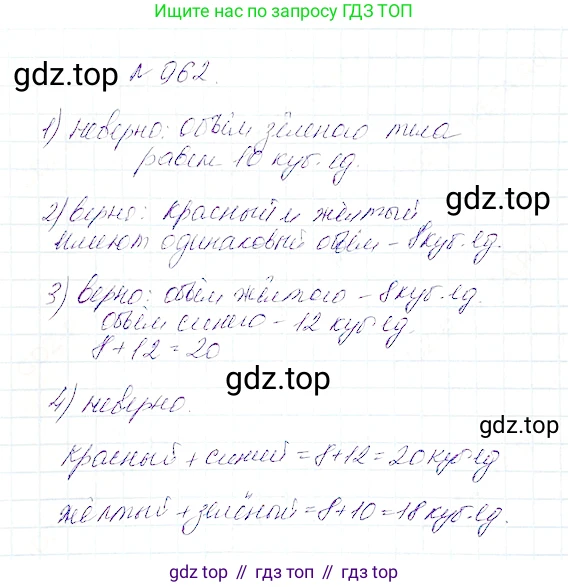 Ищите нас по запросу ГДЗ ТОП
gdz.top № 962.
1) неверно: объём зелёного тела
равен 10 куб. ед.
gdz.top
2) верно: красный и жёлтый
имеют одинаковый объём – 8 куб. ед.
3) верно: объём жёлтого – 8 куб. ед.
объём синего – 12 куб. ед.
8 + 12 = 20
gdz.top
4) неверно.
gdz.top
Красный + синий = 8 + 12 = 20 куб. ед
жёлтый + зелёный = 8 + 10 = 18 куб. ед.
gdz.top // гдз топ // гдз.топ